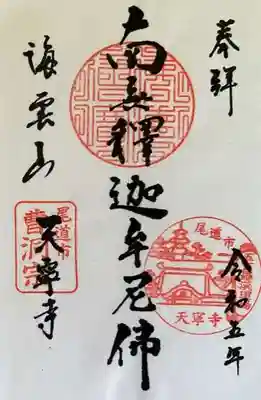 奉拝
令和五年
尾道市
天寧寺
南無釋迦牟尼佛
海雲山
天寧寺
尾道市
曹洞宗